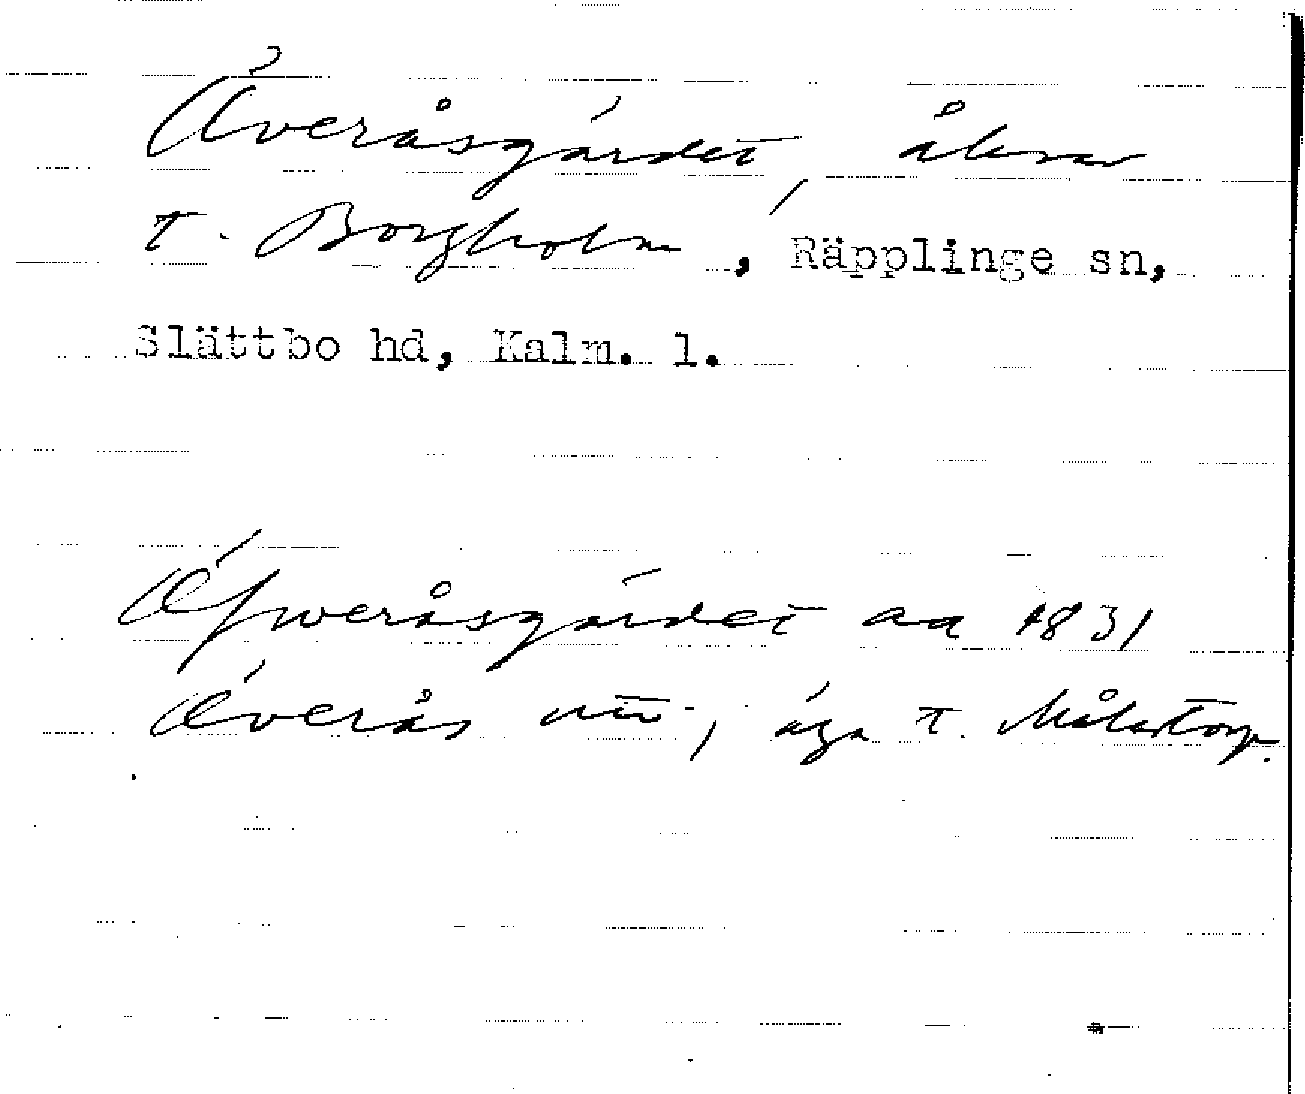 Överåsgärdet, åkrar
t. Borgholm, Räpplinge sn,
Slättbo hd, Kalm. l.
Öfweråsgärdet aa 1831
Överås , äga t. Målatorp.